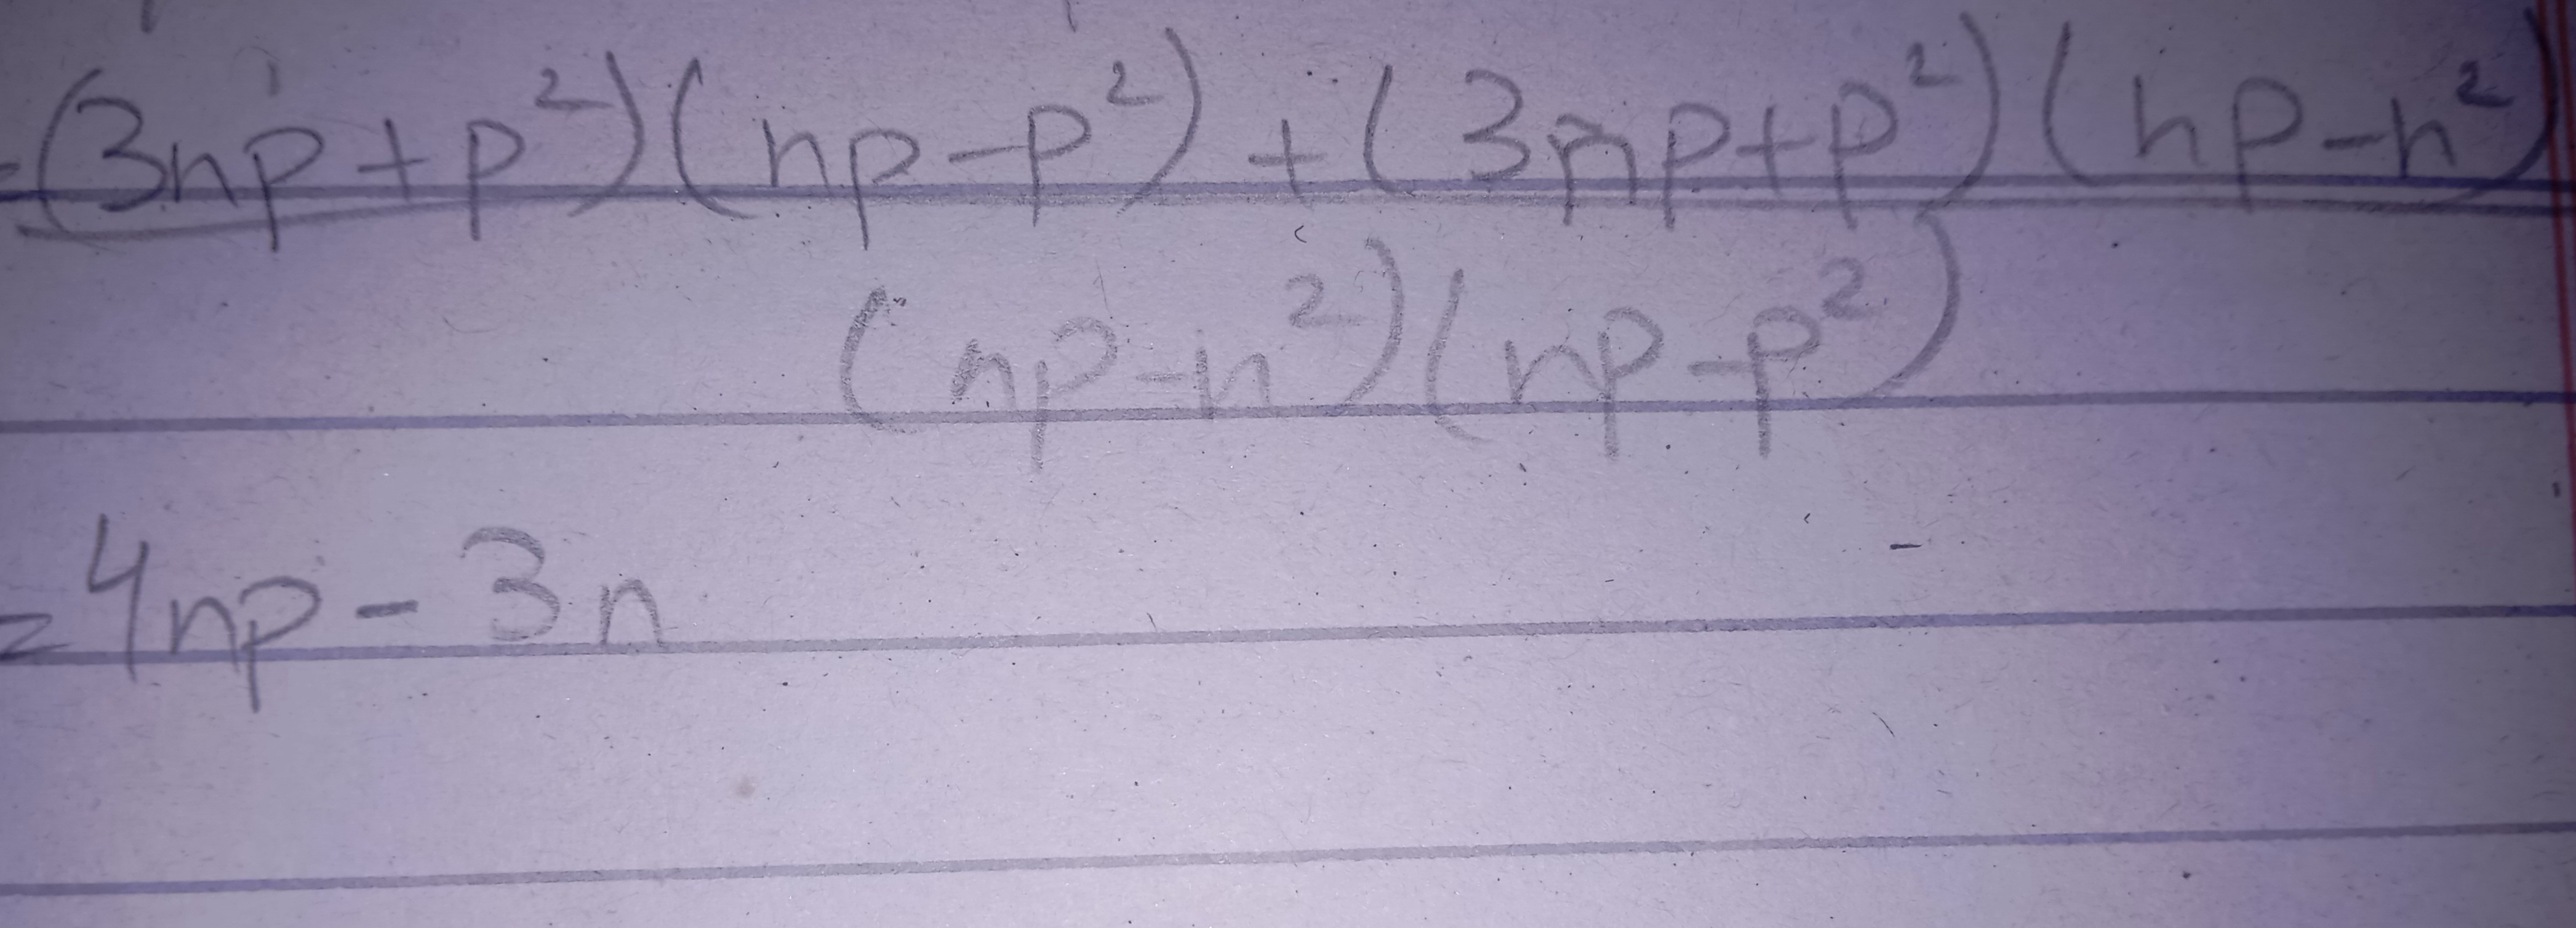 =(3np+p²)(np-p²)+(3np+p²)(np-n²)
(np-n²)(np-p²)
=4np-3n